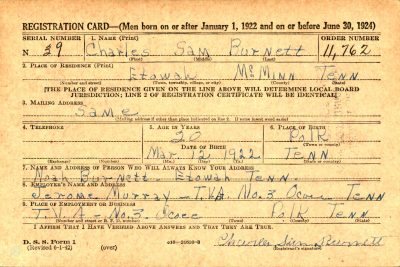 REGISTRATION CARD—(Men born on or after January 1, 1922 and on or before June 30, 1924)
SERIAL NUMBER 1. NAME (Print) ORDER NUMBER
N 29 Charles Sam Burnett 11,762
(First) (Middle) (Last)
2. PLACE OF RESIDENCE (Print)
Etowah McMinn Tenn
(Number and street) (Town, township, village, or city) (County) (State)
[THE PLACE OF RESIDENCE GIVEN ON THE LINE ABOVE WILL DETERMINE LOCAL BOARD
JURISDICTION; LINE 2 OF REGISTRATION CERTIFICATE WILL BE IDENTICAL]
3. MAILING ADDRESS
Same
[Mailing address if other than place indicated on line 2. If same insert word same]
4. TELEPHONE 5. AGE IN YEARS 6. PLACE OF BIRTH
20 Polk
DATE OF BIRTH
Mar. 12 1922 Tenn
(Exchange) (Number) (Mo.) (Day) (Yr.) (State or country)
7. NAME AND ADDRESS OF PERSON WHO WILL ALWAYS KNOW YOUR ADDRESS
Noah Burnett - Etowah Tenn.
8. EMPLOYER'S NAME AND ADDRESS
Jerome Murray - T.V.A. No. 3 Ocoee Tenn
9. PLACE OF EMPLOYMENT OR BUSINESS
T.V.A - No. 3 Ocoee Polk Tenn
(Number and street or R. F. D. number) (Town) (County) (State)
I AFFIRM THAT I HAVE VERIFIED ABOVE ANSWERS AND THAT THEY ARE TRUE.
D. S. S. Form 1
(Revised 6-1-42) (over) Charles Sam Burnett
(Registrant's signature)